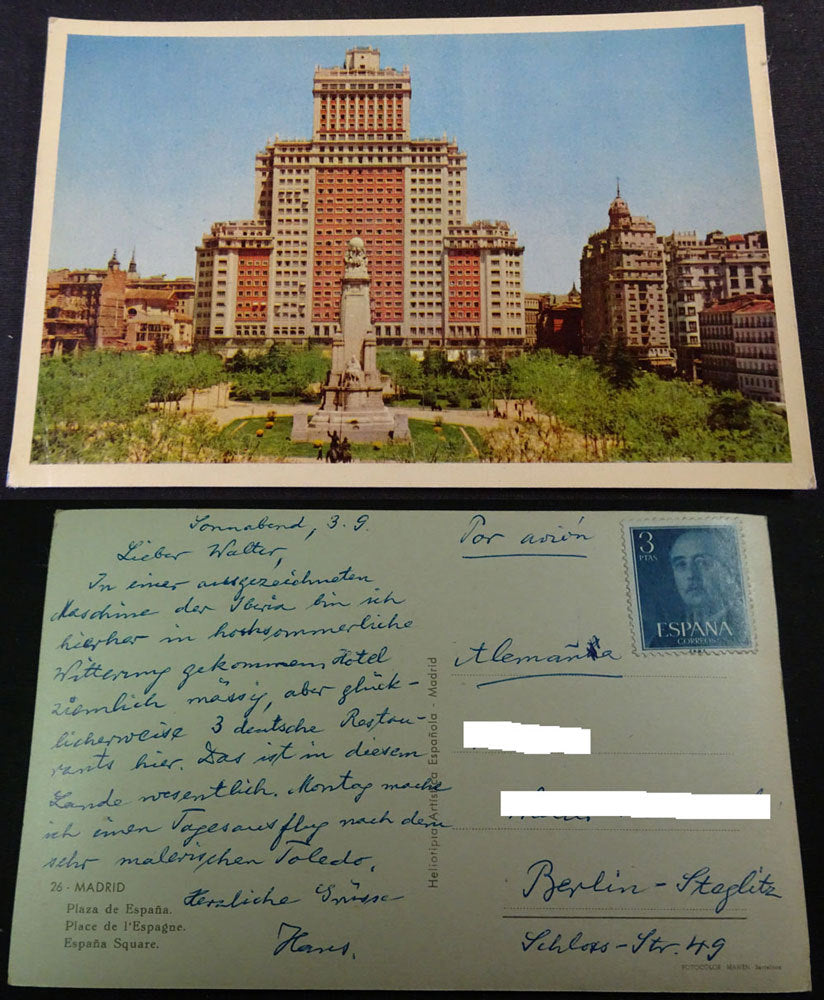 Sonnabend, 3.9.
Lieber Walter,
In einer ausgezeichneten
Maschine der Iberia bin ich
hierher in hochsommerliche
Witterung gekommen, Hotel
ziemlich mässig, aber glück-
licherweise 3 deutsche Restau-
rants hier. Das ist in diesem
Lande wesentlich. Montag mache
ich einen Tagesausflug nach dem
sehr malerischen Toledo.
Herzliche Grüsse
Hans.
26 - MADRID
Plaza de España.
Place de l'Espagne.
España Square.
Heliotipia Artística Española - Madrid
Por avión
3
PTAS
ESPAÑA
CORREOS
Alemania
Berlin - Steglitz
Schloss-Str. 49
FOTOCOLOR Barcelona